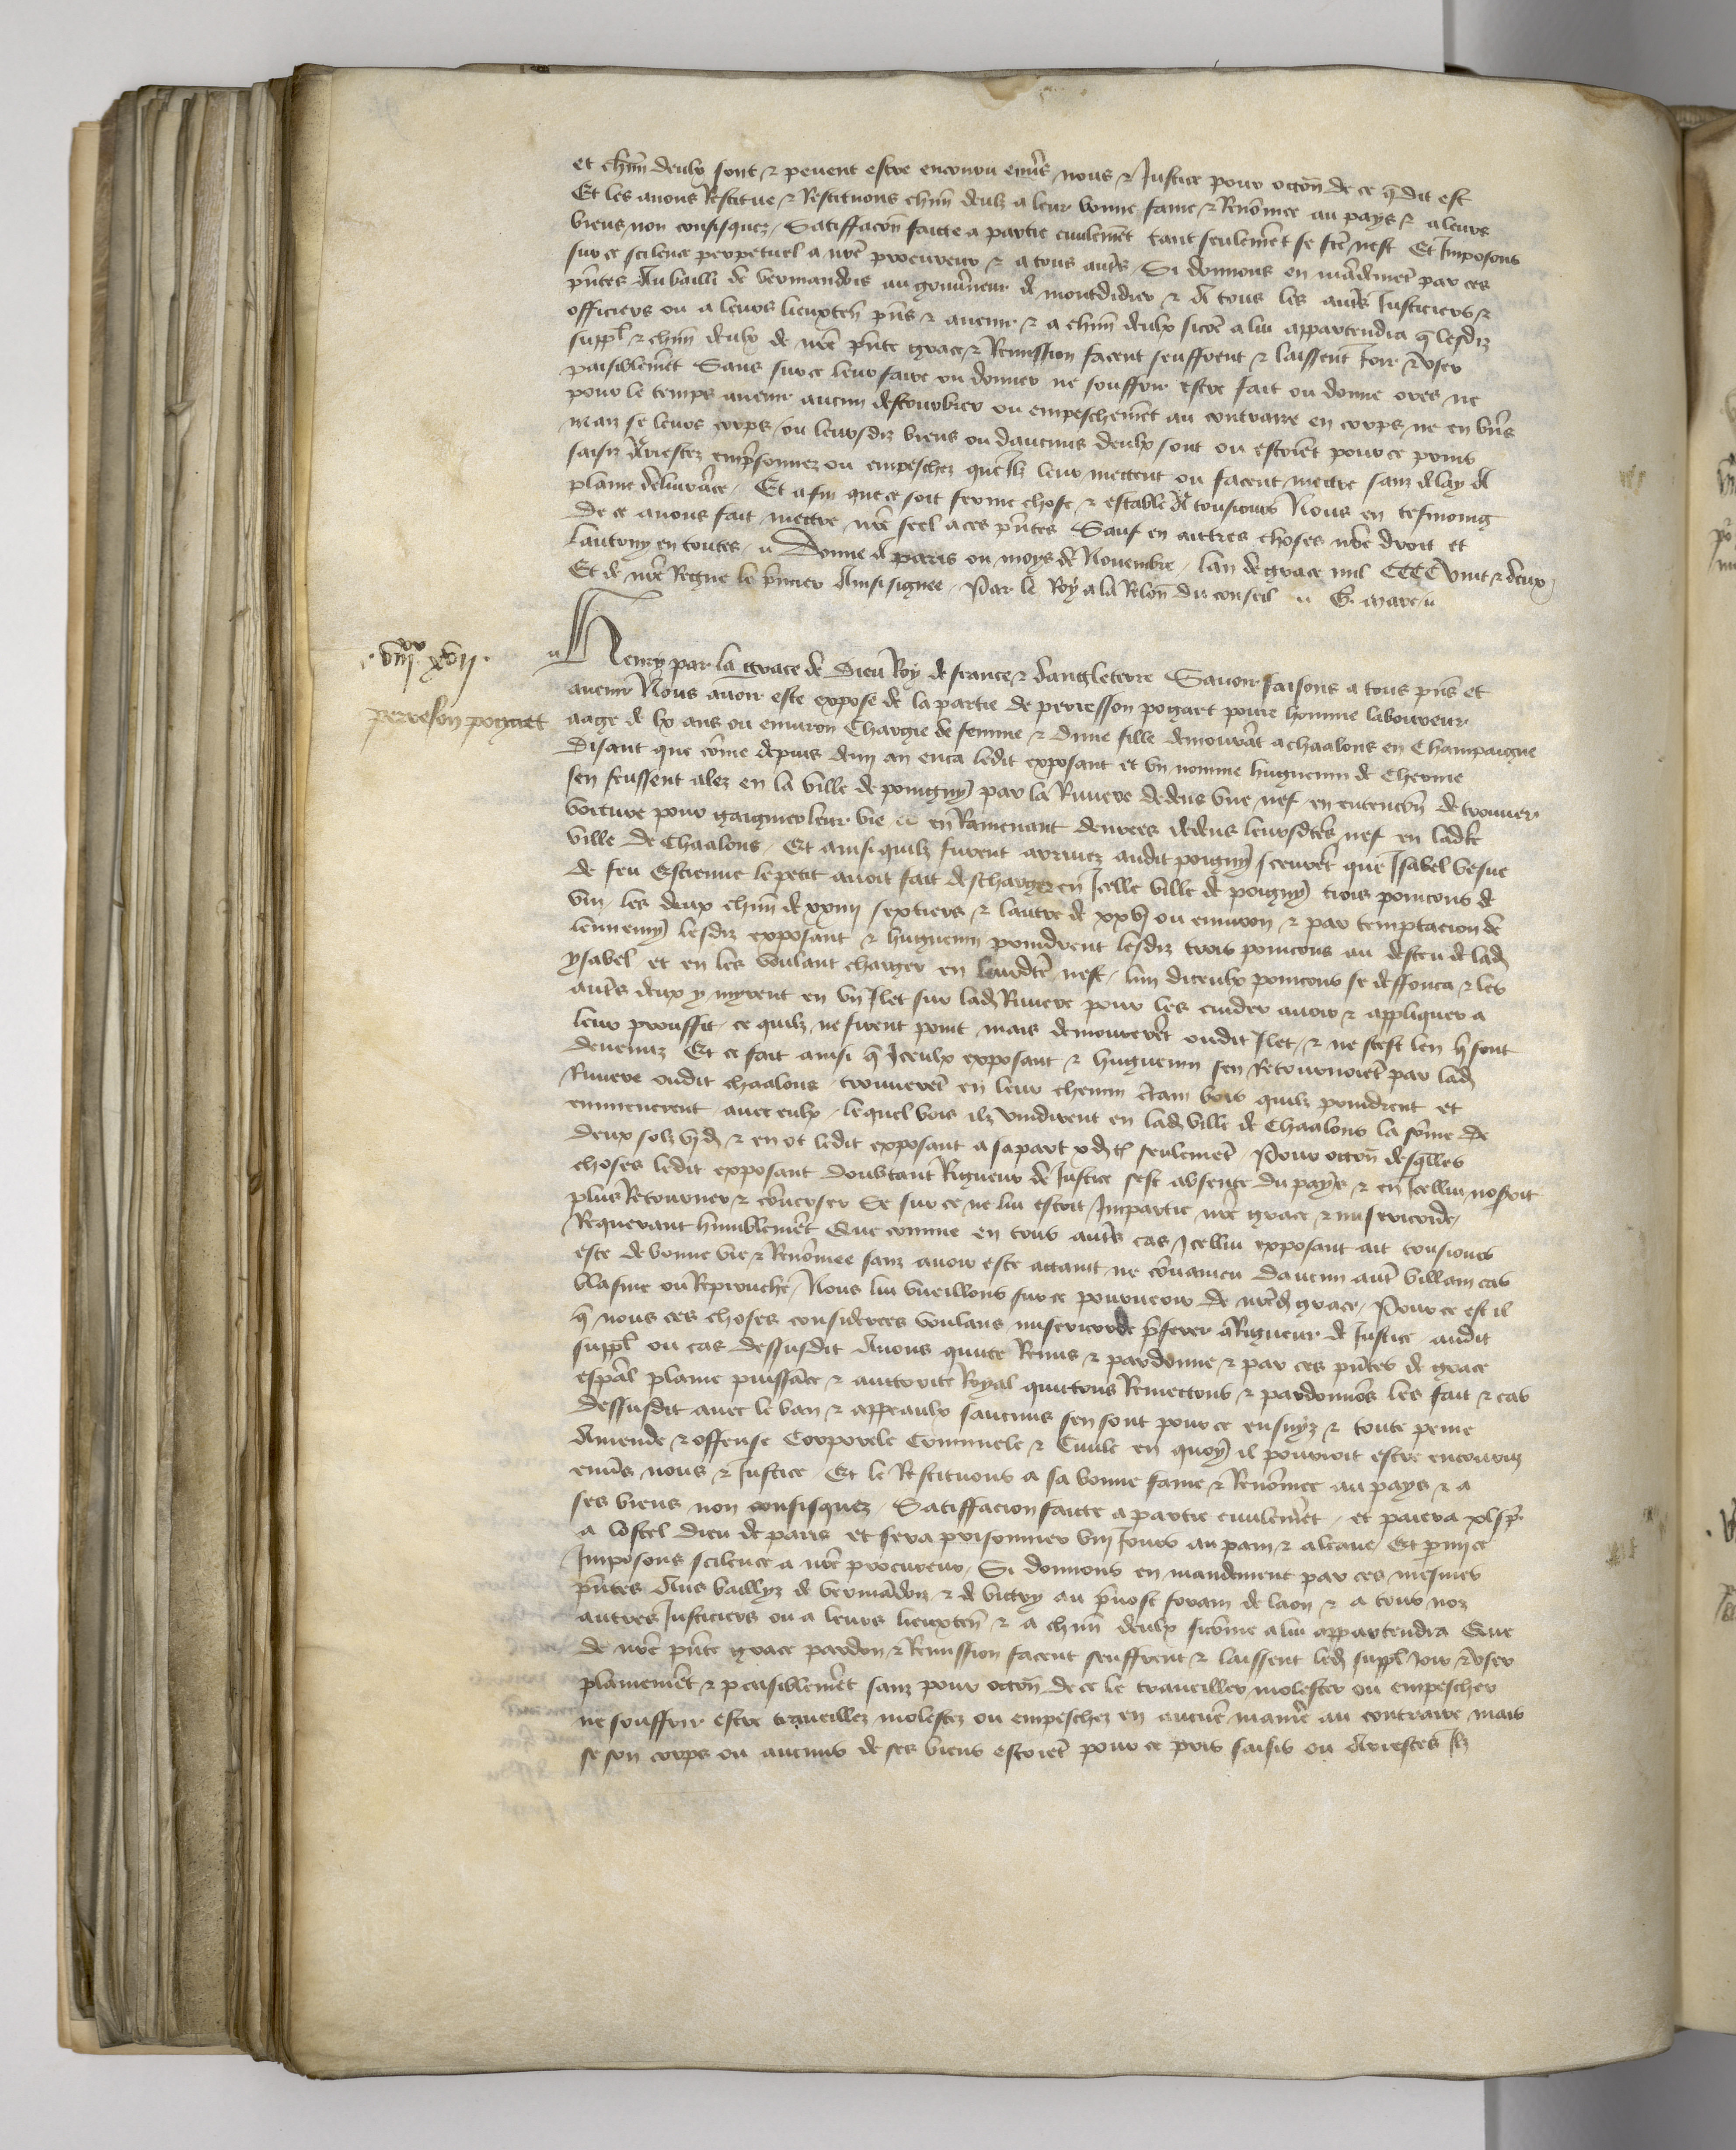 et chūn deulx sont & peuent estre encouru enūs nous & Justice pour occoñ de ce q̄ dit est
Et les auons Restitue & Restituons chūn deulz a leur bonne fame & Renōmee au pays & a leurs
biens non confisquez, Satiffacōn faicte a partie ciuilemēt tant seulemēt se fcē nest Et Imposons
sur ce scilence perpetuel a nrē procureur & a tous autrēs, Si donnons en mādemēt par ces
pn̄tes Au bailli de vermandois au gouūneur de mondidier & A tous les autrēs Justiciers &
officiers ou a leurs lieuxteñ pn̄s & auenir & a chūn deulx sicōe a lui appartendra q̄ lesdiz
suppl̄ & chūn deulx de nrē pn̄te grace & Remission facent seuffrent & laissent Joir & vser
paisiblemēt Sans sur ce leur faire ou donner ne souffrir estre fait ou donne ores ne
pour le temps auenir aucun destourbier ou empeschemēt au contraire en corps ne en biēs
mais se leurs corps, ou leursdiz biens ou daucuns deulx sont ou estoiēt pour ce prins
saisiz Arrestez emp̄sonnez ou empeschez quilz leur mettent ou facent mettre sanz delay A
plaine deliurāce, Et afin que ce soit ferme chose & estable A tousiours Nous en tesmoing
de ce auons fait mettre nrē seel a ces pn̄tes Sauf en autres choses nrē droit et
lautruy en toutes, Donne A paris ou moys de Nouembre, lan de grace mil CCCC vint & deux
Et de nrē Regne le p̄mier Ainsi signee, Par le Roy a la Relōn du conseil G. marc
viijxx xvij
Henry par la grace de Dieu Roy de france & dangleterre Sauoir faisons a tous pn̄s et
auenir Nous auoir este expose de la partie de perresson pogart poure homme laboureur
perreson poguet
aage de lx ans ou enuiron Chargie de femme & dune fille demourāt a chaalons en Champaigne
Disant que cōme depuis dem an enca ledit exposant et vn nomme huguenin de Cherme
sen feussent alez en la ville de poingny par la Riuiere dedens vne nef en entencōn de trouuer
voiture pour gaignier leur vie en Ramenant denrees dedens leursdtes nef en ladtē
ville de Chaalons, Et ainsi quilz furent arriuez audit poigny sceurēt que Isabel vesue
de feu Estienne le petit auoit fait descharger en Icelle ville de poigny trois poincons de
vin, les deux chūn de xxiiij sextiers & lautre de xxvj ou enuiron & par temptacion de
lennemy lesdiz exposant & huguenin prindrent lesdiz trois poincons au desceu de lad
ysabel et en les voulant charger en leurdtē nef, lun diceulx poincons se deffonca & les
autrēs deux y myrent en vn Islet sur lad Riuiere pour les cuider auoir & appliquer a
leur prouffit, ce quilz ne firent point mais demourerēt oudit Islet, & ne scest len q̄ sont
deuenuz Et ce fait ainsi q̄ Iceulx exposant & huguenin sen Retournoiēt par lad
Riuiere oudit chaalons trouuerēt en leur chemin c̄tain bois quilz prindrent et
emmenerent auec eulx, lequel bois ilz vindirent en lad ville de Chaalons la sōme de
deux solz vj d & en ot ledit exposant a sa part x d tˡ seulemēt, Pour occoñ desq̄lles
choses ledit exposant doubtant Rigueur de Justice sest absente du pays & en Icellui noseroit
plus Retourner & cōuerser Se sur ce ne lui estoit Impartie nrē grace & misericorde,
Requerant humblemēt Que comme en tous autrēs cas Icellui exposant ait tousiours
este de bonne vie & Renōmee sanz auoir este attaint ne cōuaincu daucun autrē villain cas
blasme ou Reprouche, Nous lui vueillons sur ce pourueoir de nrēd grace, Pour ce est il
q̄ nous ces choses considerees voulans misericorde p̄ferer a Rigueur de Justice audit
suppl̄ ou cas dessusdit Auons quitte Remis & pardonne & par ces pn̄tes de grace
esp̄al plaine puissāce & auctorite Royal quittons Remettons & pardonnōs les fait & cas
dessusdit auec le ban & appeaulx saucuns sen sont pour ce ensuyz & toute peine
Amende & offense Corporele Criminele & Ciuile en quoy il pourroit estre encouruz
enūs nous & Justice Et le Restituons a sa bonne fame & Renōmee au pays & a
ses biens non confisquez, Satiffacion faicte a partie ciuilemēt, et paiera xl s p̄
a lostel dieu de paris et sera prisonnier viij Jours au pain & a leaue Et parmi ce
Imposons scilence a nrē procureur, Si donnons en mandement par ces mesmes
pn̄tes Aus bailliz de vermādois & de victry au p̄uost forain de laon & a tous noz
autres Justiciers ou a leurs lieuxteñ & a chūn deulx sicōme a lui appartendra Que
de nrē pn̄te grace pardon & Remission facent seuffrent & laissent led suppl̄ Joir & vser
plainemēt & paisiblemēt sanz pour occoñ de ce le trauciller molester ou empescher
ne souffrir estre traueillez molestez ou empeschez en aucunē maniē̄ au contraire, mais
se son corps ou aucuns de ses biens estoiēt pour ce pris saisis ou Arrestes Ilz